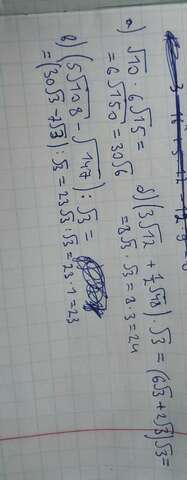 а) √10 · 6√15 =
= 6√150 = 30√6
б) (3√12 + 7√48) · √3 = (6√3 + 2√3)√3 =
= 8√3 · √3 = 8 · 3 = 24
в) (5√108 - √147) : √3 =
= (30√3 - 7√3) : √3 = 23√3 : √3 = 23 · 1 = 23